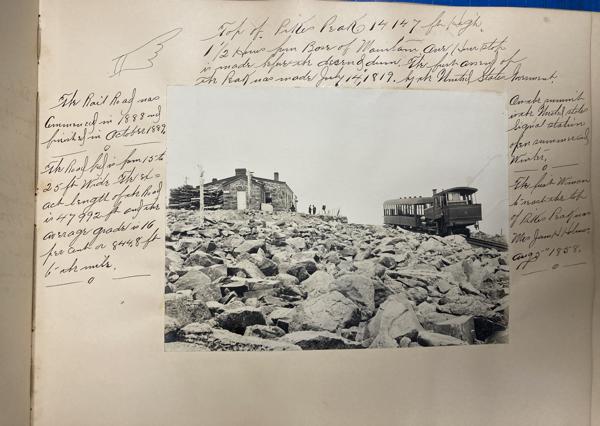 Top of Pikes Peak 14147 ft high.
1 1/2 Hours from Base of Mountain. One Hour stop
is made before the descending. The first ascent of
the Peak was made July 14, 1819, by the United States Government.
The Rail Road was
Commenced in 1888 and
finished in October 1889
The Road bed is from 15 to
25 ft Wide. The ex=
act length of the Road
is 47,992 ft and the
average grade is 16
per cent or 844,8 ft
to the mile.
On the summit
is the United States
Signal station
open summer and
Winter.
The first Woman
to reach the top
of Pikes Peak was
Mrs James H. Holmes
Aug 1858.